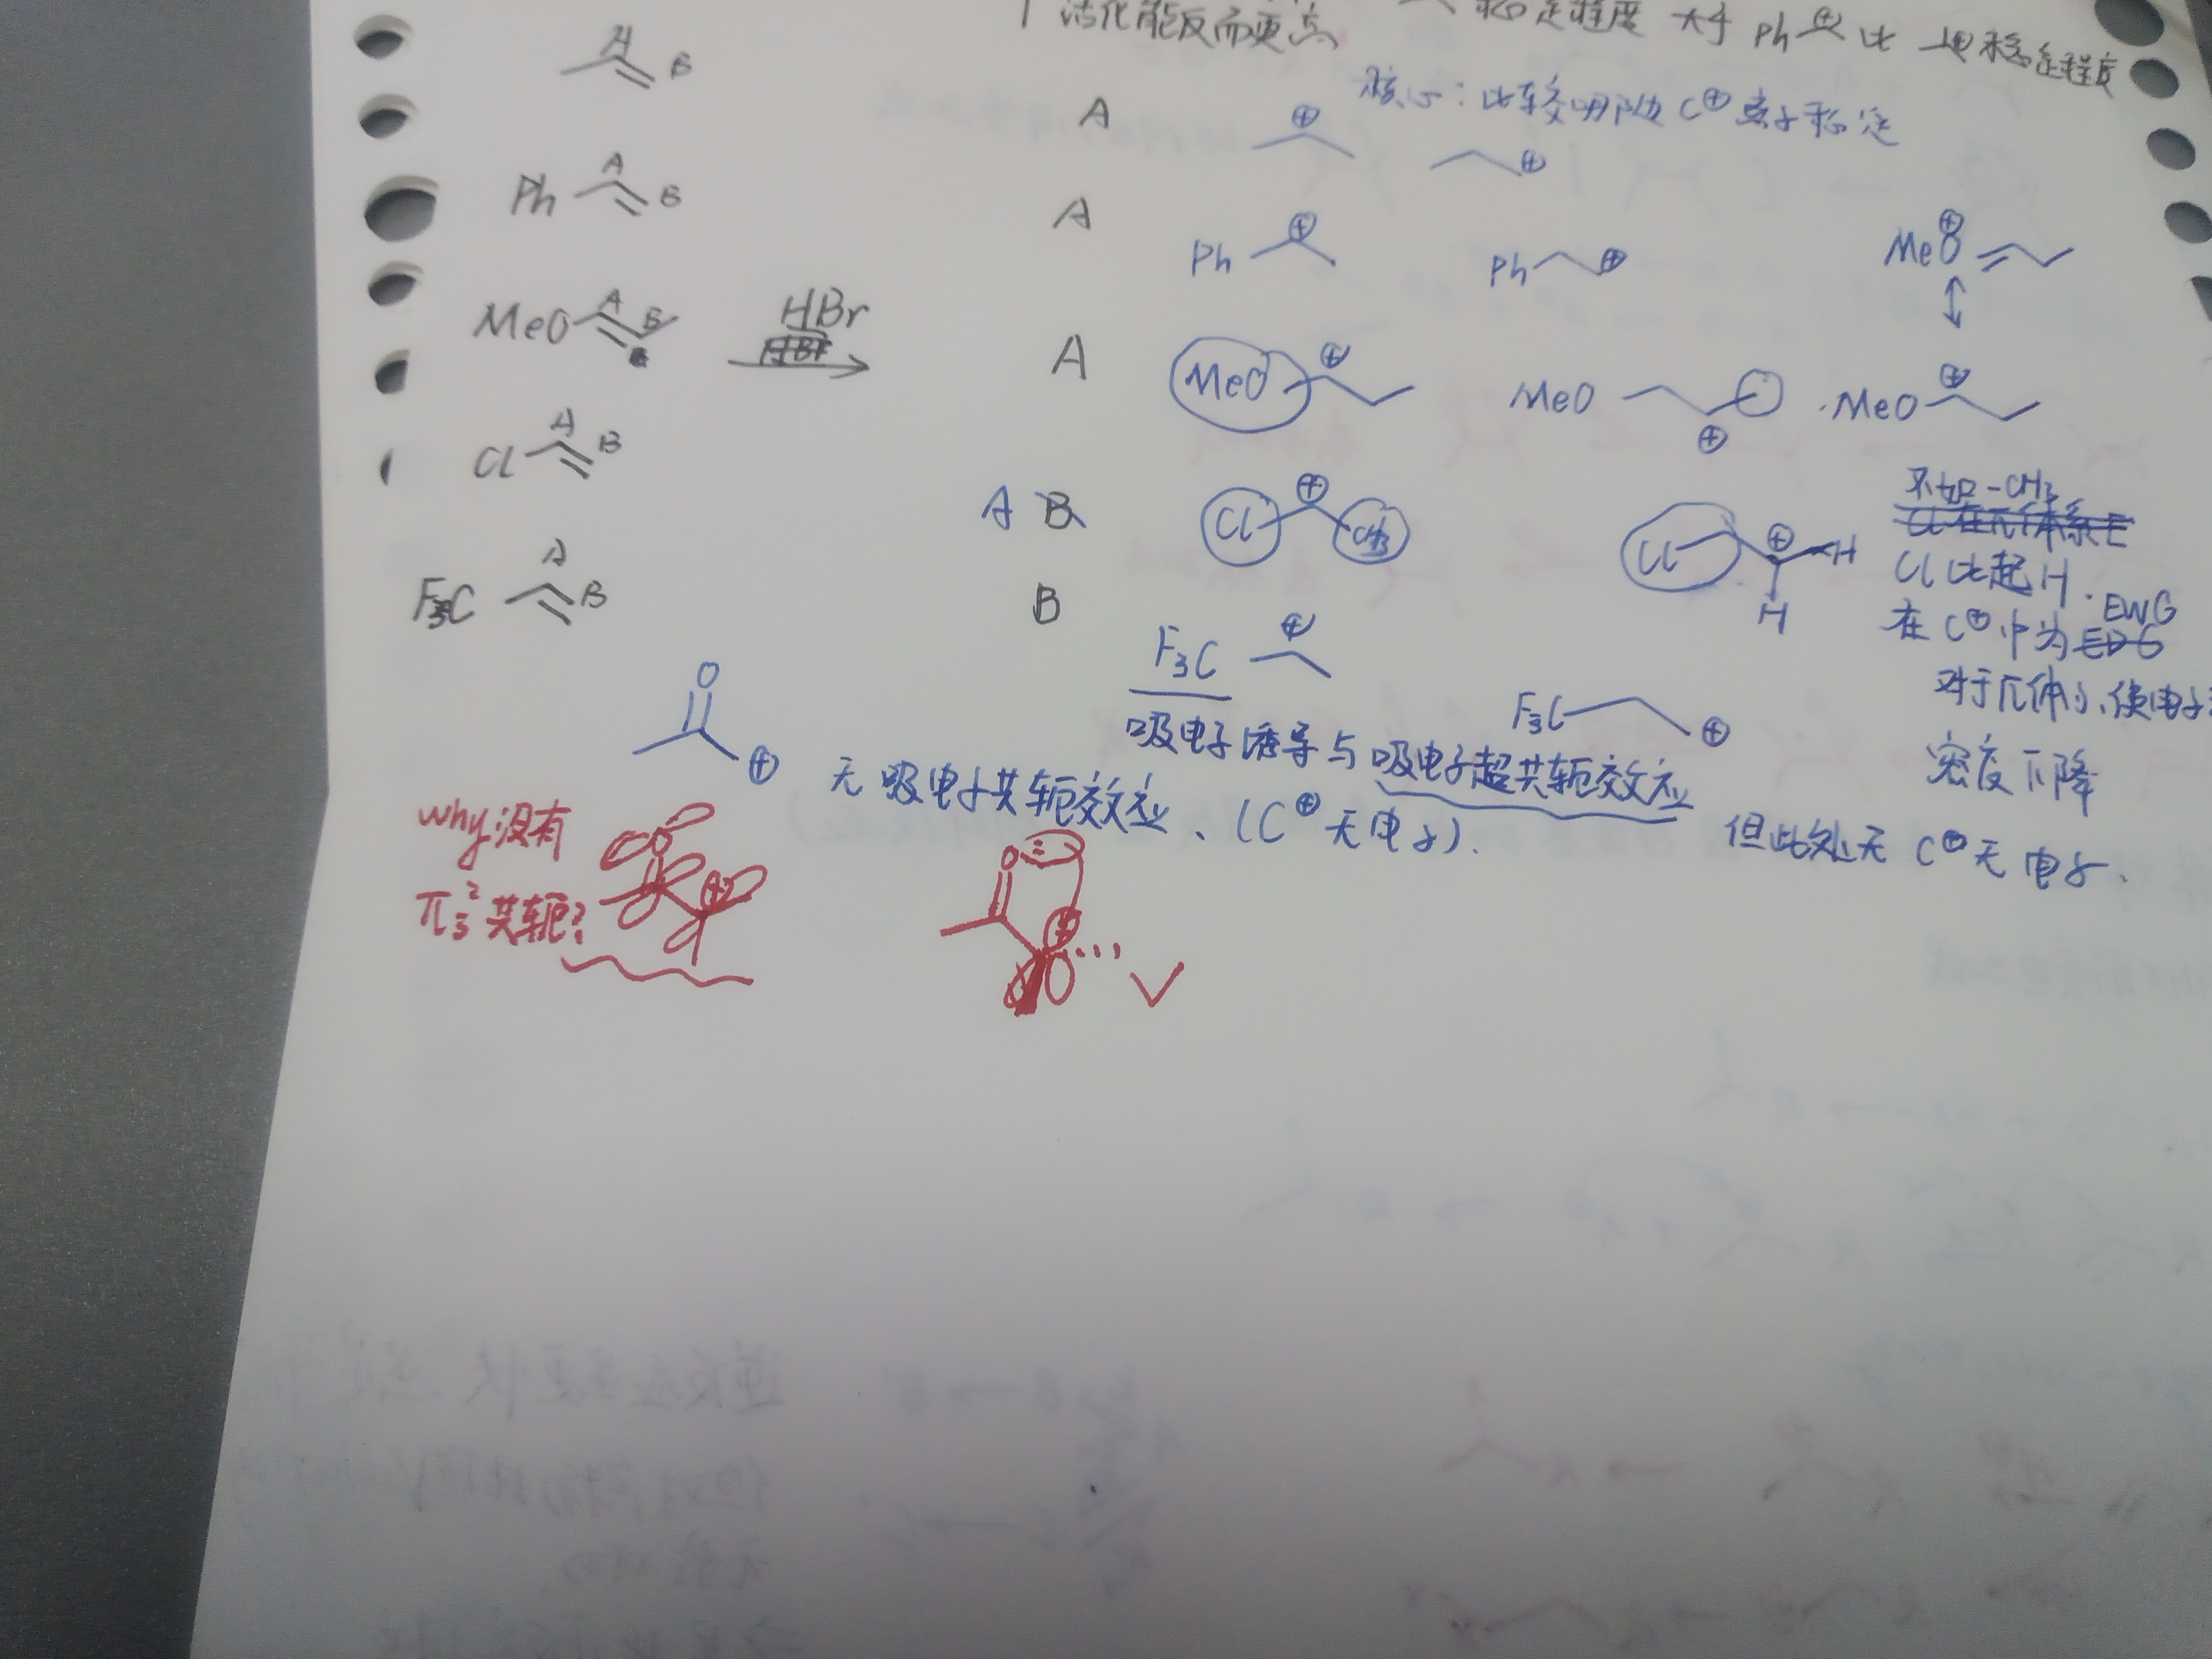 活化能反而更高 稳定程度 大于 Ph ⊕ 比 ⊕稳定程度
核心：比较哪边C⊕离子稳定
A B A ⊕ ⊕
Ph A B A Ph ⊕ Ph ⊕ MeO⊕
MeO A B HBr A MeO ⊕ MeO ⊕ MeO ⊕
Cl A B A B Cl ⊕ CH3 Cl ⊕ H H
不如-CH3
Cl比起H.
在C⊕中为 EWG
对于π体系，使电子
密度下降
F3C A B B F3C ⊕ F3C ⊕
吸电子诱导与吸电子超共轭效应
但此处无C⊕无电子.
O ⊕ 无吸电子共轭效应、(C⊕无电子).
why没有
π₃²共轭?
O ⊕ O ⊕